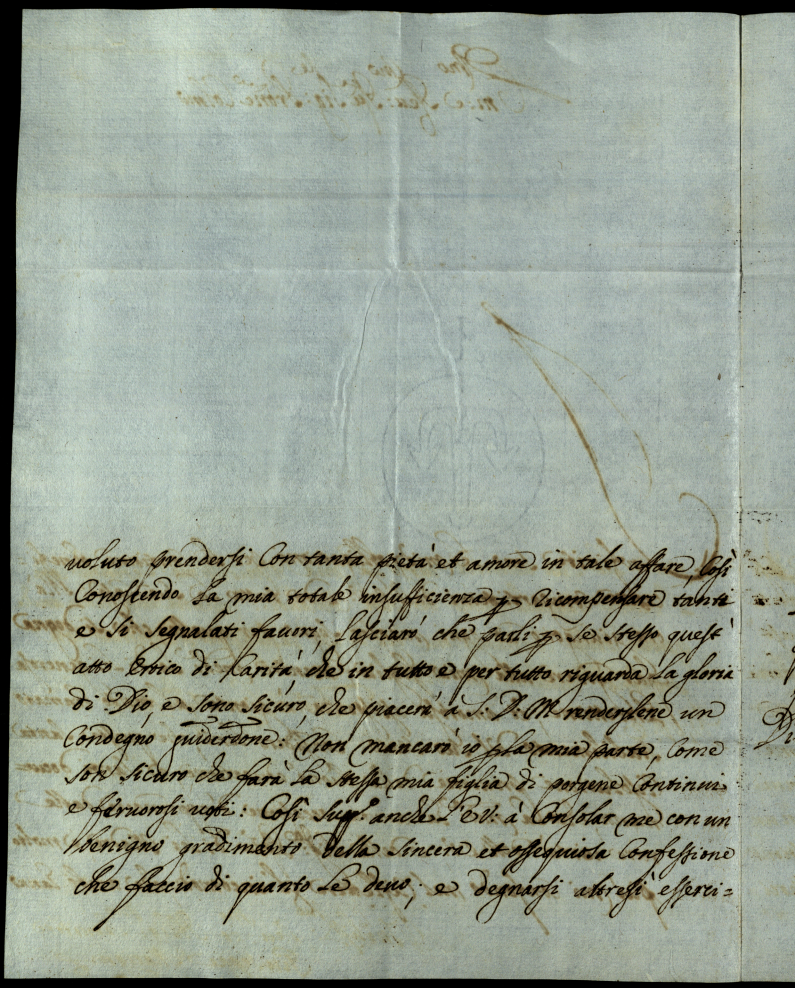 voluto prendersi con tanta pietà et amore in tale affare, Così
Conoscendo la mia totale insufficienza p ricompensare tanti
e sì segnalati favori, lasciarò che parli p se stesso quest'
atto eroico di Carità che in tutto e per tutto riguarda la gloria
di Dio, e sono sicuro, che piacerà à S: D: M. rendersene un
Condegno guiderdone: Non mancarò io p la mia parte, Come
son sicuro che farà la stessa mia figlia di porgene Continui
e feruorosi uoti: Così supp.º anche l'E.V: à Consolar me con un
benigno gradimento della sincera et ossequiosa Confessione
che faccio di quanto le deuo; e degnarsi altresì esserci=